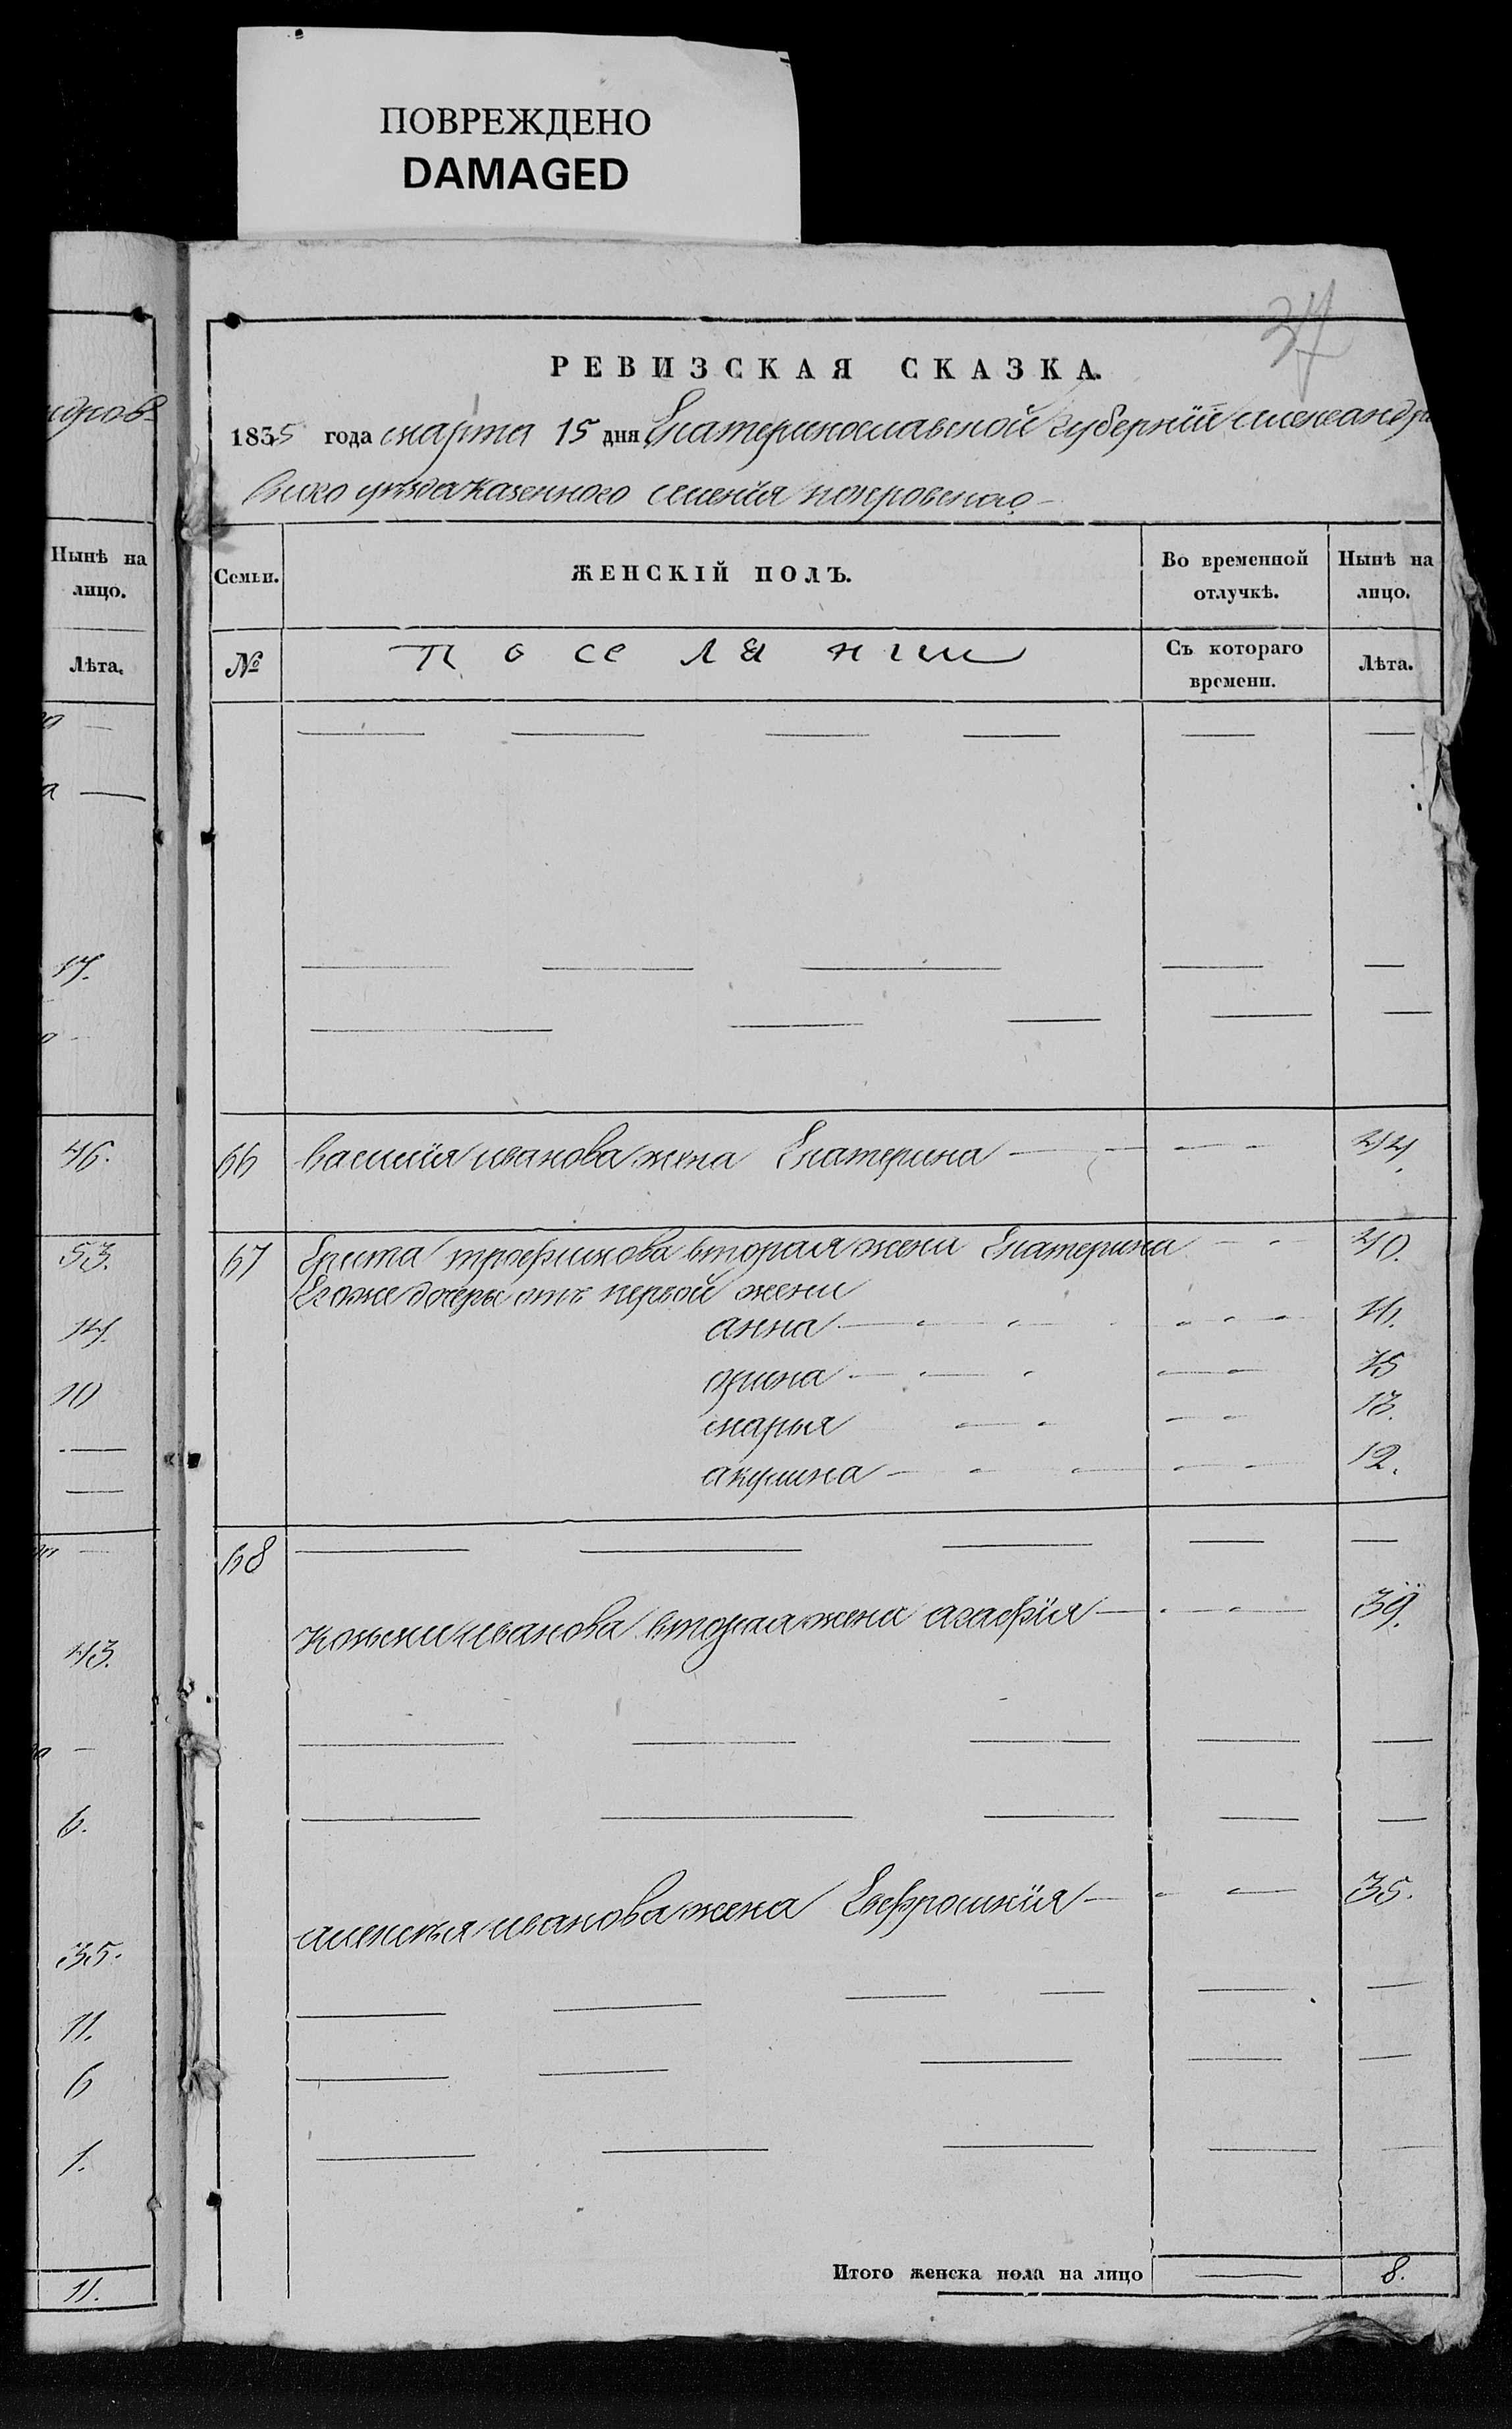 ПОВРЕЖДЕНО
DAMAGED
37
РЕВИЗСКАЯ СКАЗКА.
1835 года марта 15 дня Екатеринославской губернии александро
вского уезда казенного селения покровского
Нынѣ на
лицо.
Лѣта.
17.
46.
53.
14.
10
43.
6.
35.
11.
6
1.
11.
Семьи. ЖЕНСКІЙ ПОЛЪ. Во временной отлучкѣ. Нынѣ на лицо.
№ поселянии Съ котораго времени. Лѣта.
66 василия иванова жена Екатерина 44.
67 трофимова вторая жена Екатерина 40.
Его же дочери отъ первой жени
анна 16.
орина 15
марья 13.
акулина 12.
68
иванова вторая жена агафия 39.
алексея иванова жена Евфросиния 35.
Итого женска пола на лицо 8.